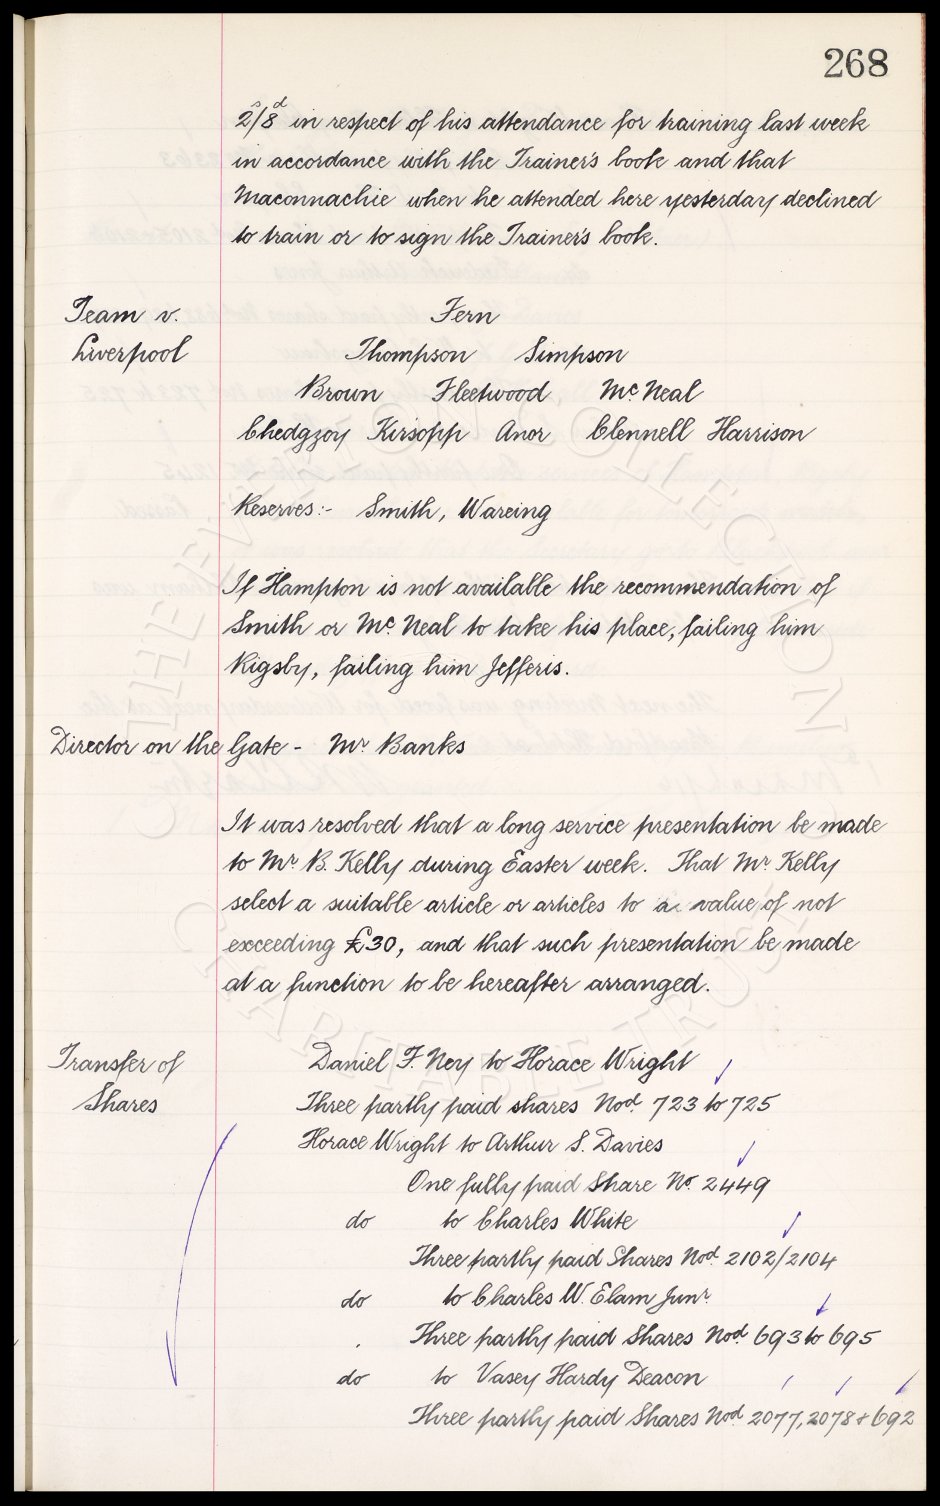 268
2s/8d in respect of his attendance for training last week
in accordance with the Trainer's book and that
Maconnachie when he attended here yesterday declined
to train or to sign the Trainer's book.
Team v. Fern
Liverpool Thompson Simpson
Brown Fleetwood Mc Neal
Chedgzoy Kirsopp Anor Clennell Harrison
Reserves:- Smith, Wareing
If Hampton is not available the recommendation of
Smith or Mc Neal to take his place, failing him
Rigsby, failing him Jefferis.
Director on the Gate - Mr Banks
It was resolved that a long service presentation be made
to Mr B. Kelly during Easter week. That Mr Kelly
select a suitable article or articles to a value of not
exceeding £30, and that such presentation be made
at a function to be hereafter arranged.
Transfer of Daniel F. Ney to Horace Wright
Shares Three partly paid shares Nod. 723 to 725
Horace Wright to Arthur S. Davies
One fully paid Share No. 2449
do to Charles White
Three partly paid Shares Nod. 2102/2104
do to Charles W. Elam Junr.
Three partly paid Shares Nod. 693 to 695
do to Vasey Hardy Deacon
Three partly paid Shares Nod. 2077, 2078 & 692
THE EVERTON COLLECTION
CHARITABLE TRUST